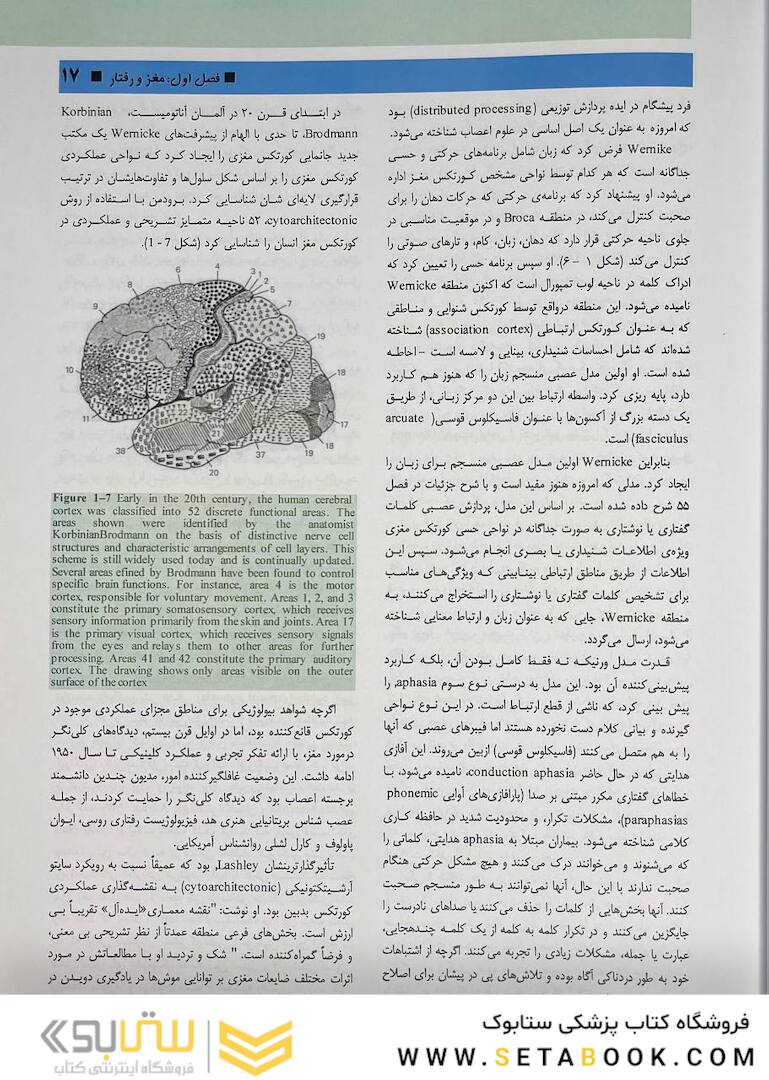 ■ فصل اول: مغز و رفتار ■ ۱۷
فرد پیشگام در ایده پردازش توزیعی (distributed processing) بود
که امروزه به عنوان یک اصل اساسی در علوم اعصاب شناخته می‌شود.
Wernike فرض کرد که زبان شامل برنامه‌های حرکتی و حسی
جداگانه است که هر کدام توسط نواحی مشخص کورتکس مغز اداره
می‌شود. او پیشنهاد کرد که برنامه‌ی حرکتی که حرکات دهان را برای
صحبت کنترل می‌کند، در منطقه Broca و در موقعیت مناسبی در
جلوی ناحیه حرکتی قرار دارد که دهان، زبان، کام، و تارهای صوتی را
کنترل می‌کند (شکل ۱ -۶). او سپس برنامه حسی را تعیین کرد که
ادراک کلمه در ناحیه لوب تمپورال است که اکنون منطقه Wernicke
نامیده می‌شود. این منطقه درواقع توسط کورتکس شنوایی و مناطقی
که به عنوان کورتکس ارتباطی (association cortex) شناخته
شده‌اند که شامل احساسات شنیداری، بینایی و لامسه است -احاطه
شده است. او اولین مدل عصبی منسجم زبان را که هنوز هم کاربرد
دارد، پایه ریزی کرد. واسطه ارتباط بین این دو مرکز زبانی، از طریق
یک دسته بزرگ از آکسون‌ها با عنوان فاسیکلوس قوسی( arcuate
fasciculus) است.
بنابراین Wernicke اولین مدل عصبی منسجم برای زبان را
ایجاد کرد. مدلی که امروزه هنوز مفید است و با شرح جزئیات در فصل
۵۵ شرح داده شده است. بر اساس این مدل، پردازش عصبی کلمات
گفتاری یا نوشتاری به صورت جداگانه در نواحی حسی کورتکس مغزی
ویژه‌ی اطلاعات شنیداری یا بصری انجام می‌شود. سپس این
اطلاعات از طریق مناطق ارتباطی بینابینی که ویژگی‌های مناسب
برای تشخیص کلمات گفتاری یا نوشتاری را استخراج می‌کنند، به
منطقه Wernicke، جایی که به عنوان زبان و ارتباط معنایی شناخته
می‌شود، ارسال می‌گردد.
قدرت مدل ورنیکه نه فقط کامل بودن آن، بلکه کاربرد
پیش‌بینی‌کننده آن بود. این مدل به درستی نوع سوم aphasia، را
پیش بینی کرد، که ناشی از قطع ارتباط است. در این نوع نواحی
گیرنده و بیانی کلام دست نخورده هستند اما فیبرهای عصبی که آنها
را به هم متصل می‌کنند (فاسیکلوس قوسی) ازبین می‌روند. این آفازی
هدایتی که در حال حاضر conduction aphasia، نامیده می‌شود، با
خطاهای گفتاری مکرر مبتنی بر صدا (پارافازی‌های آوایی phonemic
paraphasias)، مشکلات تکرار، و محدودیت شدید در حافظه کاری
کلامی شناخته می‌شود. بیماران مبتلا به aphasia هدایتی، کلماتی را
که می‌شنوند و می‌خوانند درک می‌کنند و هیچ مشکل حرکتی هنگام
صحبت ندارند با این حال، آنها نمی‌توانند به طور منسجم صحبت
کنند. آنها بخش‌هایی از کلمات را حذف می‌کنند یا صداهای نادرست را
جایگزین می‌کنند و در تکرار کلمه به کلمه از یک کلمه چندهجایی،
عبارت یا جمله، مشکلات زیادی را تجربه می‌کنند. اگرچه از اشتباهات
خود به طور دردناکی آگاه بوده و تلاش‌های پی در پیشان برای اصلاح
در ابتدای قرن ۲۰ در آلمان آناتومیست، Korbinian
Brodmann، تا حدی با الهام از پیشرفت‌های Wernicke یک مکتب
جدید جانمایی کورتکس مغزی را ایجاد کرد که نواحی عملکردی
کورتکس مغزی را بر اساس شکل سلول‌ها و تفاوت‌هایشان در ترتیب
قرارگیری لایه‌ای شان شناسایی کرد. برودمن با استفاده از روش
cytoarchitectonic، ۵۲ ناحیه متمایز تشریحی و عملکردی در
کورتکس مغز انسان را شناسایی کرد (شکل 7 - 1).
6 4 3 1 2 5
8 7
9 19
10 18
11 17
38 37 19 18
20
Figure 1–7 Early in the 20th century, the human cerebral
cortex was classified into 52 discrete functional areas. The
areas shown were identified by the anatomist
KorbinianBrodmann on the basis of distinctive nerve cell
structures and characteristic arrangements of cell layers. This
scheme is still widely used today and is continually updated.
Several areas efined by Brodmann have been found to control
specific brain functions. For instance, area 4 is the motor
cortex, responsible for voluntary movement. Areas 1, 2, and 3
constitute the primary somatosensory cortex, which receives
sensory information primarily from the skin and joints. Area 17
is the primary visual cortex, which receives sensory signals
from the eyes and relays them to other areas for further
processing. Areas 41 and 42 constitute the primary auditory
cortex. The drawing shows only areas visible on the outer
surface of the cortex
اگرچه شواهد بیولوژیکی برای مناطق مجزای عملکردی موجود در
کورتکس قانع‌کننده بود، اما در اوایل قرن بیستم، دیدگاه‌های کلی‌نگر
درمورد مغز، با ارائه تفکر تجربی و عملکرد کلینیکی تا سال ۱۹۵۰
ادامه داشت. این وضعیت غافلگیرکننده امور، مدیون چندین دانشمند
برجسته اعصاب بود که دیدگاه کلی‌نگر را حمایت کردند، از جمله
عصب شناس بریتانیایی هنری هد، فیزیولوژیست رفتاری روسی، ایوان
پاولوف و کارل لشلی روانشناس آمریکایی.
تأثیرگذارترینشان Lashley، بود که عمیقاً نسبت به رویکرد سایتو
آرشیتکتونیکی (cytoarchitectonic) به نقشه‌گذاری عملکردی
کورتکس بدبین بود. او نوشت: "نقشه معماری«ایده‌آل» تقریباً بی
ارزش است. بخش‌های فرعی منطقه عمدتاً از نظر تشریحی بی معنی،
و فرضاً گمراه‌کننده است. " شک و تردید او با مطالعاتش در مورد
اثرات مختلف ضایعات مغزی بر توانایی موش‌ها در یادگیری دویدن در
فروشگاه کتاب پزشکی ستابوک
WWW.SETABOOK.COM
ستابوک
فروشگاه اینترنتی کتاب